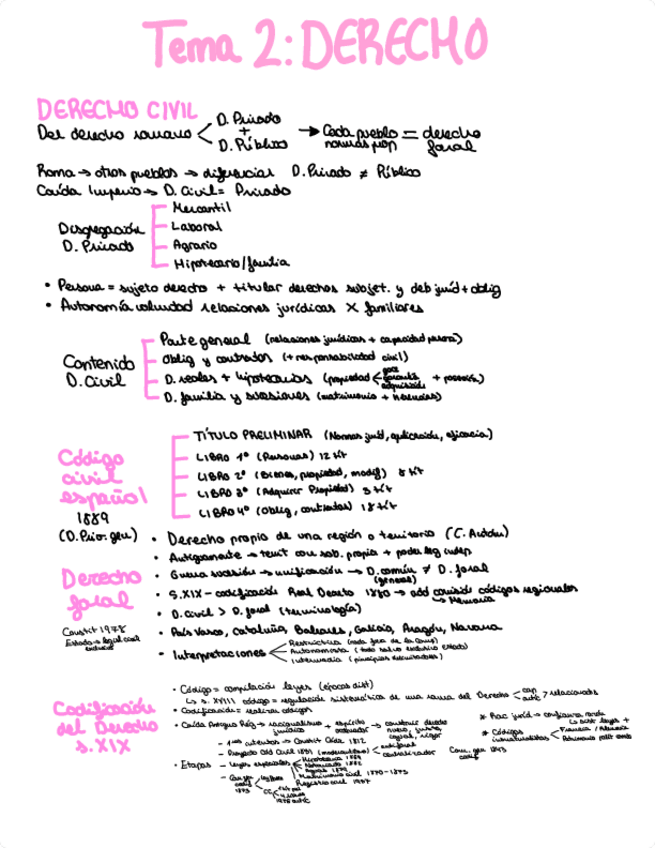 Tema 2: DERECHO
DERECHO CIVIL
Del derecho romano < D. Privado + D. Público → Cada pueblo normas prop = derecho foral
Roma → otros pueblos → diferenciar D. Privado ≠ Público
Caída Imperio → D. Civil = Privado
Disgregación D. Privado
Mercantil
Laboral
Agrario
Hipotecario/familia
• Persona = sujeto derecho + titular derechos subjet. y deb juríd + oblig
• Autonomía voluntad relaciones jurídicas X familiares
Contenido D. Civil
Parte general (relaciones jurídicas + capacidad persona)
Oblig y contratos (+ responsabilidad civil)
D. reales + hipotecarios (propiedad < + posesión)
D. familia y sucesiones (matrimonio + herencias)
Código civil español
1889
(D. Priv. gen)
TÍTULO PRELIMINAR (Normas juríd, aplicación, eficacia)
LIBRO 1º (Personas) 12 tít
LIBRO 2º (Bienes, propiedad, modif) 8 tít
LIBRO 3º (Adquirir Propiedad) 3 tít
LIBRO 4º (Oblig, contratos) 18 tít
Derecho foral
Constit 1978
• Derecho propio de una región o territorio (C. Autón)
• Antiguamente → territ con sob. propia + poder leg indep
• Guerra sucesión → unificación → D. común ≠ D. foral
(general)
• S.XIX - codificación Real Decreto 1880 → add comisión códigos regionales
↳ Memoria
• D. civil > D. foral (terminología)
• País Vasco, Cataluña, Baleares, Galicia, Aragón, Navarra
• Interpretaciones
Restrictiva
Autonomista (todo salvo exclusivo estado)
Intermedia
Codificación del Derecho s.XIX
• Código = compilación leyes (épocas dist)
↳ s. XVIII código = regulación sistemática de una rama del Derecho
• Codificación = realizar códigos
• Caída Antiguo Rég → racionalismo jurídico + espíritu → construir derecho nuevo, justo,
* Códigos
- 1ros intentos → Constit Cádiz 1812
- Proyecto Cód Civil 1851
• Etapas - Leyes especiales
Hipotecaria
Matrimonio civil 1870-1875
Registro civil